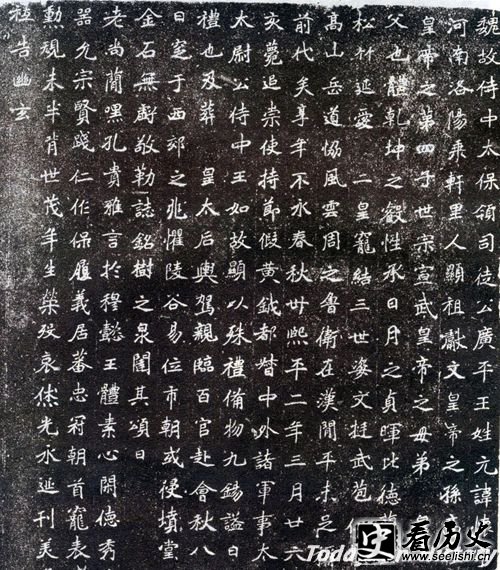 魏故侍中太保領司徒公廣平王姓元諱
河南洛陽乘軒里人顯祖獻文皇帝之孫
皇帝之第四子世宗宣武皇帝之母弟
父也體乾坤之叡性承日月之貞暉比德
松竹延愛二皇寵結三世姿文挺武苞仁
高山岳道協風雲周之魯衛在漢閒平未足
前代矣享年不永春秋卅熙平二年三月廿六
亥薨追崇使持節假黃鉞都督中外諸軍事太
太尉公侍中王如故顯以殊禮備物九錫謚曰
禮也及葬皇太后輿駕親臨百官赴會秋八
日窆于西郊之兆懼陵谷易位市朝或侵墳堂
金石無虧敬勒誌銘樹之泉闥其頌曰
老尚簡嘿孔貴雅言於穆懿王體素心閑德秀
器允宗賢踐仁作保履義居蕃忠冠朝首寵表
勳規未半背世茂年生榮歿哀休光永延刊美
祗告幽玄
看历史
www.seelishi.cn